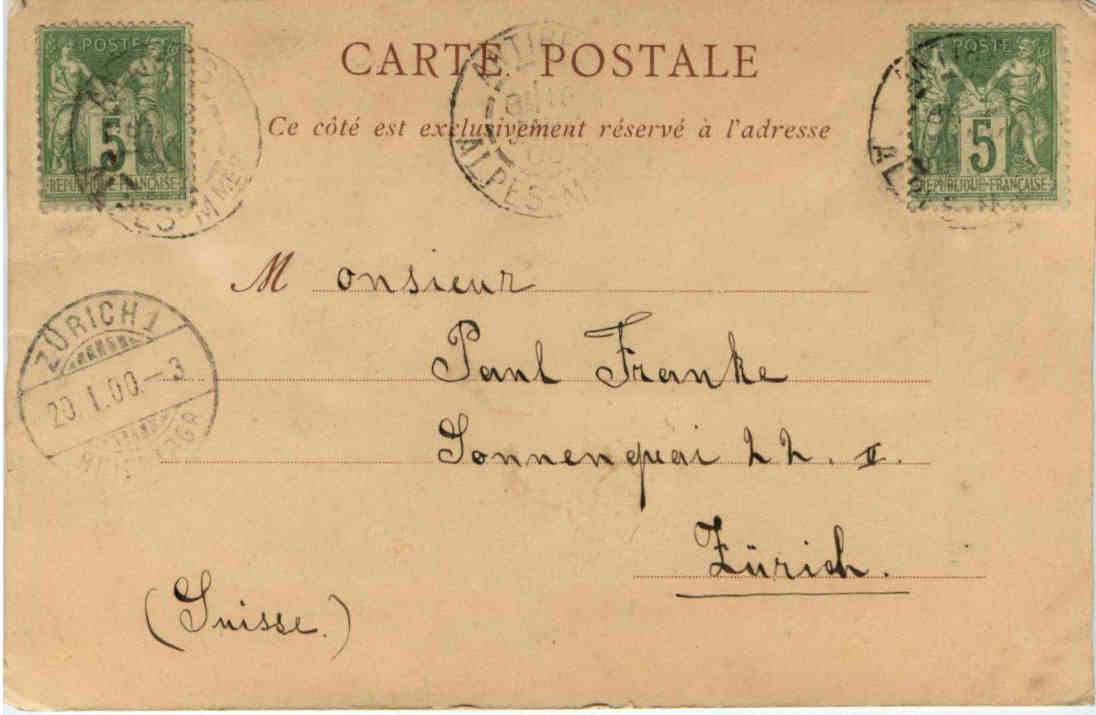 CARTE POSTALE
Ce côté est exclusivement réservé à l'adresse
POSTE
5
REPUBLIQUE FRANÇAISE
ANTIBES
ALPES-M
POSTE
5
REPUBLIQUE-FRANÇAISE
Monsieur
Paul Franke
Sonnenquai 22. II.
Zürich.
(Suisse.)
ZÜRICH 1
20. I. 00.–3